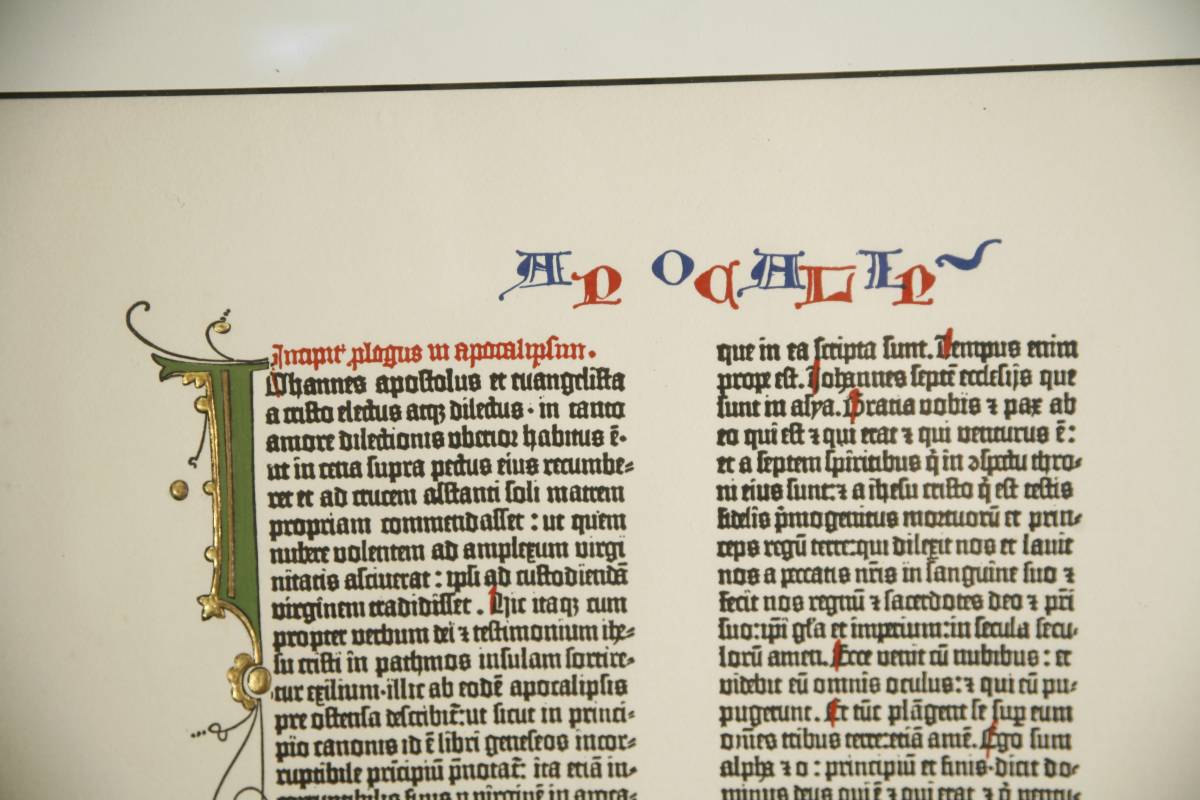 APOCALIP
Incipit plogus in apocalipsim.
Iohannes apostolus et euangelista
a cristo electus atqꝫ dilectus · in tanto
amore dilectionis vberior habitus ē·
ut in cena supra pectus eius recumbe⸗
ret et ad crucem assstanti soli matrem
propriam commendasset : ut quem
nubere volentem ad amplexum virgi
nitatis asciuerat : ipsi ad custodiendā
virginem tradidisset . Hic itaqꝫ cum
propter verbum dei ⁊ testimonium ihe⸗
su cristi in pathmos insulam sortire⸗
tur exilium·illic ab eodē apocalipsis
pre ostensa describit̄:ut sicut in princi⸗
pio canonis id ē libri geneseos incor⸗
ruptibile prīcipiū p̄notat̄: ita etiā in⸗
que in ea scripta sunt. Tempus enim
prope est. Iohannes septē ecclesijs que
sunt in asya. Gratia vobis ⁊ pax ab
eo qui est ⁊ qui erat ⁊ qui venturus ē:
et a septem spiritibus q̇ in ɔspc̄tu thro⸗
ni eius sunt:⁊ a ihesu cristo q̇ est testis
fidelis p̄mogenitus mortuorū et prin⸗
ceps regū terre:qui dilexit nos et lauit
nos a peccatis nr̄is in sanguine suo ⁊
fecit nos regnū ⁊ sacerdotes deo ⁊ pr̄i
suo:ip̄i gl̄a et imperium:in secula secu⸗
lorū amen. Ecce venit cū nubibus : et
videbit eū omnis oculus:⁊ qui eū pu⸗
pugerunt. Et tūc plāgent se sup eum
om̄es tribus terre:etiā amē. Ego sum
alpha ⁊ o : principiū et finis·dicit do⸗
minus deus qui ē ⁊ qui erat ⁊ q̇ ventu⸗